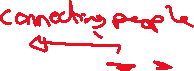 connecting people